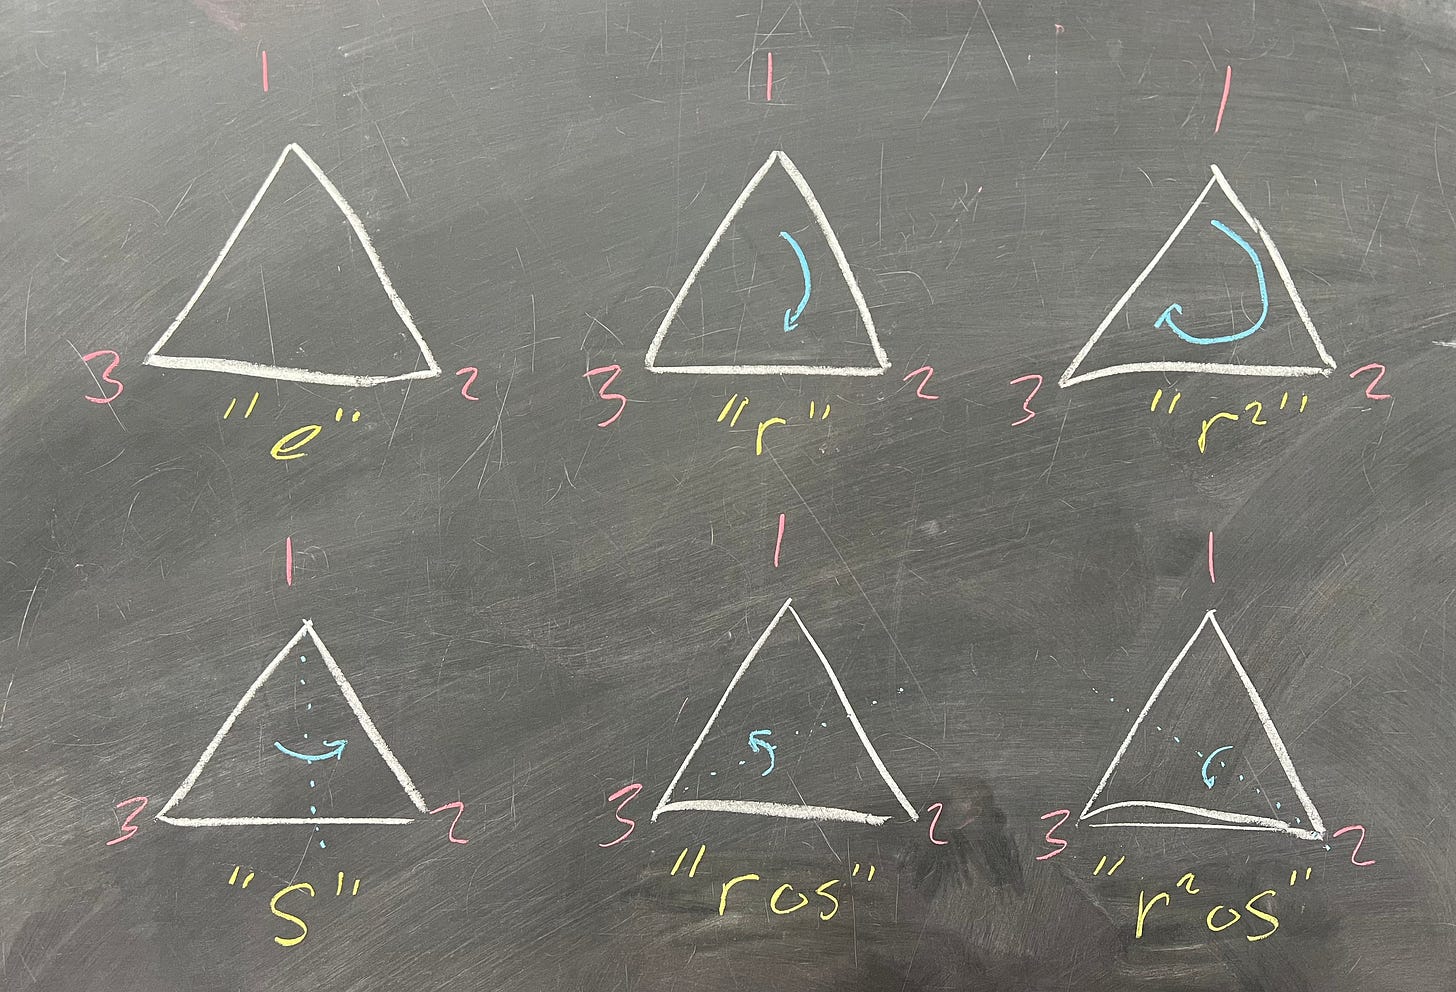 1 1 1
3 2 3 2 3 2
"e" "r" "r²"
1 1 1
3 2 3 2 3 2
"s" "ros" "r²os"